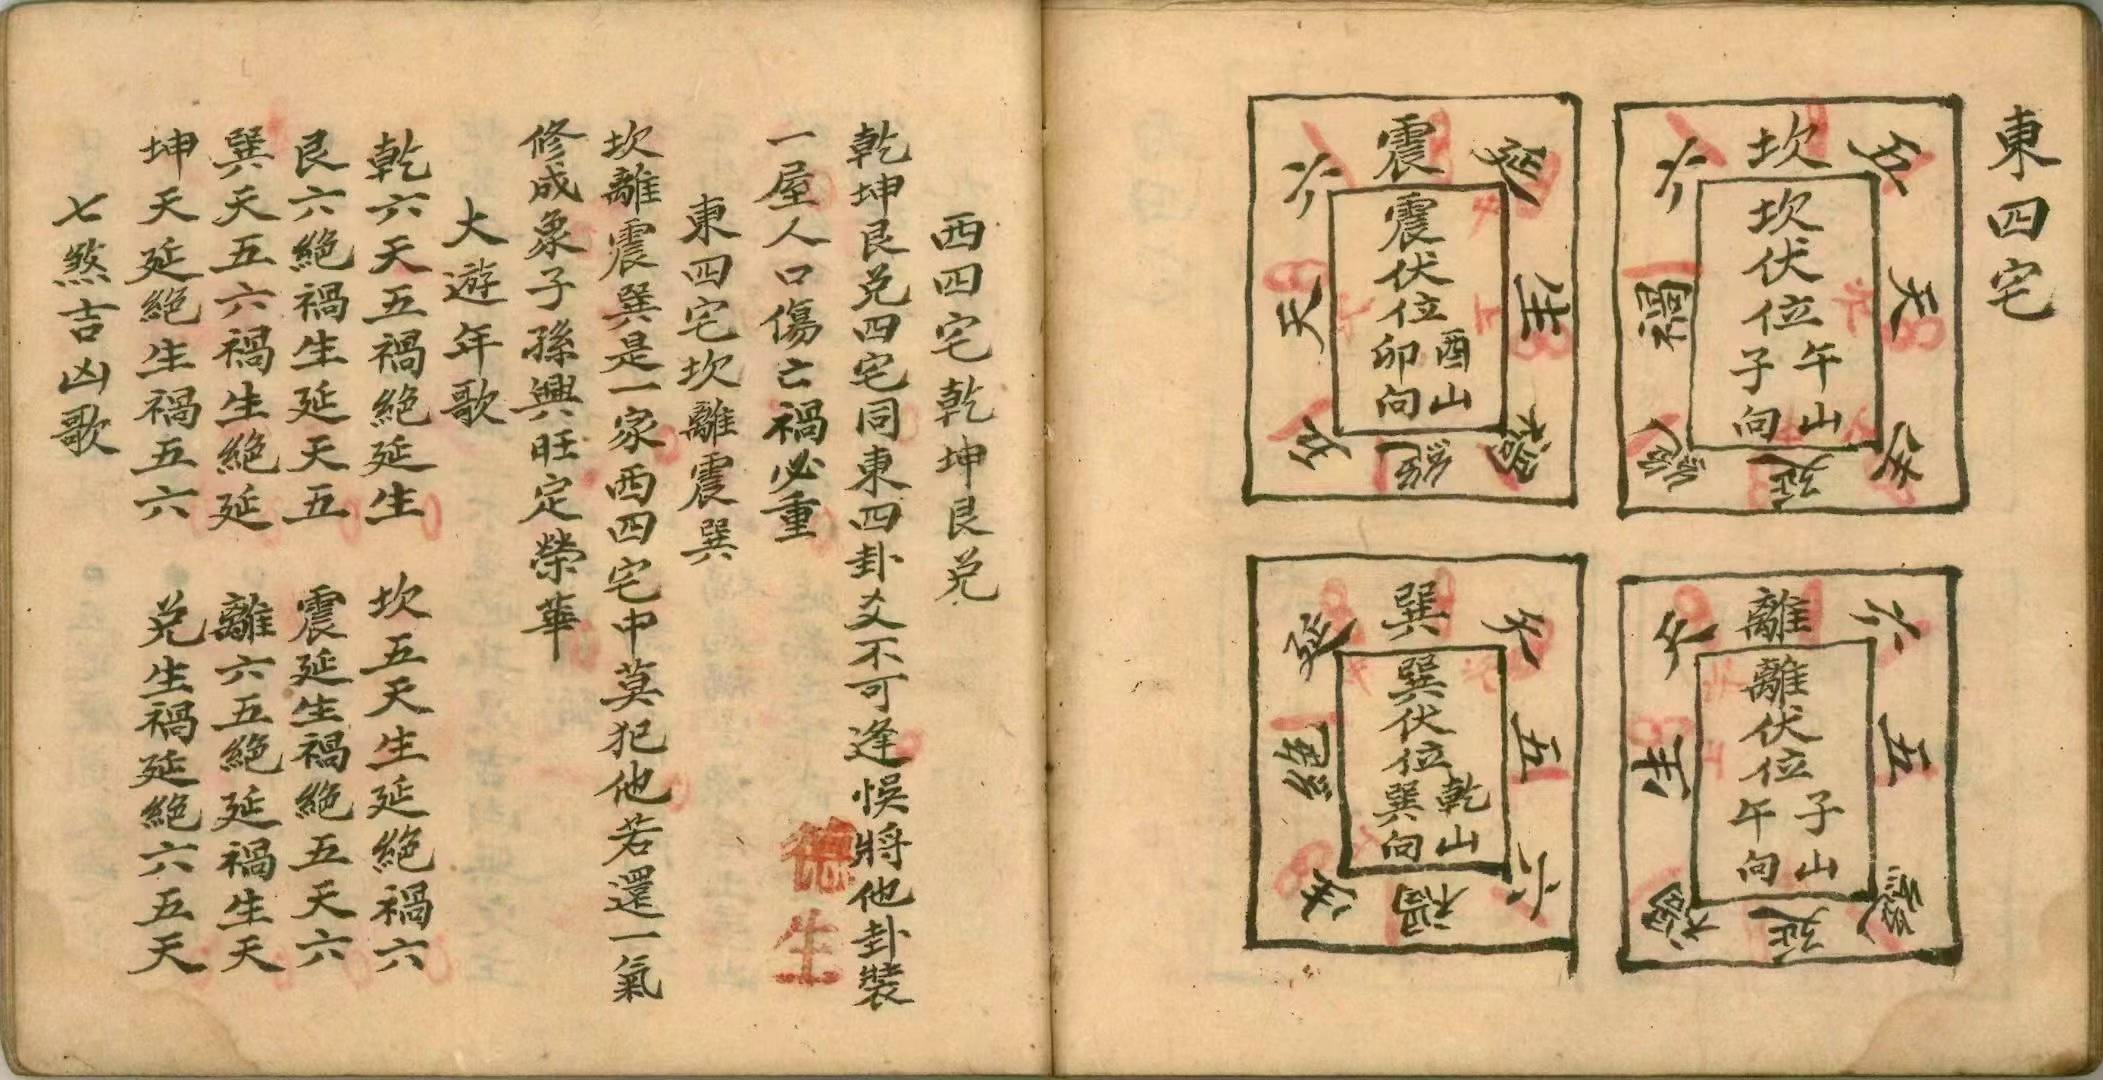 東四宅
坎
五
天
生
延
絕
禍
六
坎伏位
午山
子向
離
六
五
絕
延
禍
生
天
離伏位
子山
午向
震
延
生
禍
絕
五
天
六
震伏位
酉山
卯向
巽
天
五
六
禍
生
絕
延
巽伏位
乾山
巽向
西四宅乾坤艮兌
乾坤艮兌四宅同東四卦爻不可逢悮將他卦裝
一屋人口傷亡禍必重
德生
東四宅坎離震巽
坎離震巽是一家西四宅中莫犯他若還一氣
修成象子孫興旺定榮華
大遊年歌
乾六天五禍絕延生 坎五天生延絕禍六
艮六絕禍生延天五 震延生禍絕五天六
巽天五六禍生絕延 離六五絕延禍生天
坤天延絕生禍五六 兌生禍延絕六五天
七煞吉凶歌